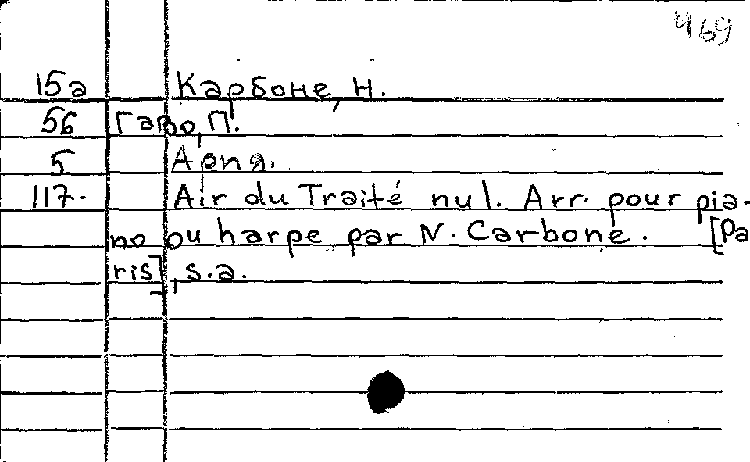 469
15а Карбоне, Н.
56 Гаво, П.
5 Арпя.
117. Air du Traité nul. Arr. pour pia-
no ou harpe par N. Carbone. [Pa
ris], s.a.